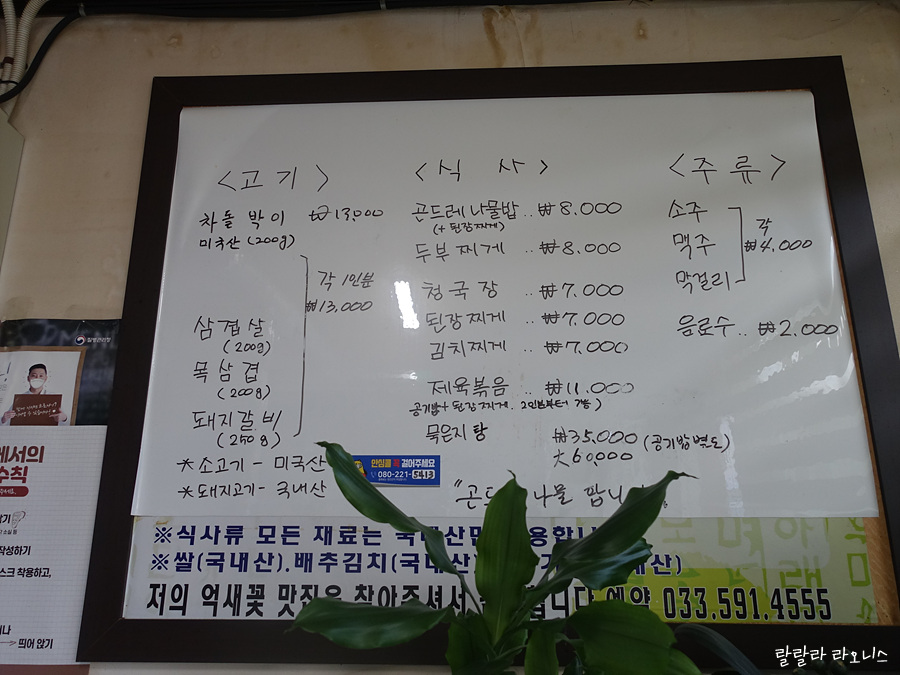 <고기>
차돌박이 ₩13,000
미국산 (200g)
각 1인분
₩13,000
삼겹살
(200g)
목삼겹
(200g)
돼지갈비
(250g)
*소고기 - 미국산
*돼지고기 - 국내산
<식사>
곤드레나물밥.. ₩8.000
(+된장찌게)
두부찌게 ..₩8,000
청국장 ₩7,000
된장찌게 ..₩7,000
김치찌게 ..₩7,000
제육볶음 ..₩11,000
공기밥+된장찌게. 2인분부터 가능)
묵은지탕 ₩35,000 (공기밥별도)
大60,000
"곤드 나물 팝니
<주류>
소주
맥주
막걸리
각
₩4,000
음료수..₩2.000
안심콜 꼭 걸어주세요
080-221-5413
※식사류 모든 재료는
※쌀(국내산).배추김치(국내산) 산)
저의 억새꽃 맛집을 찾아주셔서 예약 033.591.4555
질병관리청
에서의
수칙
작성하기
스크 착용하고,
띄어 앉기
랄랄라 라오니스